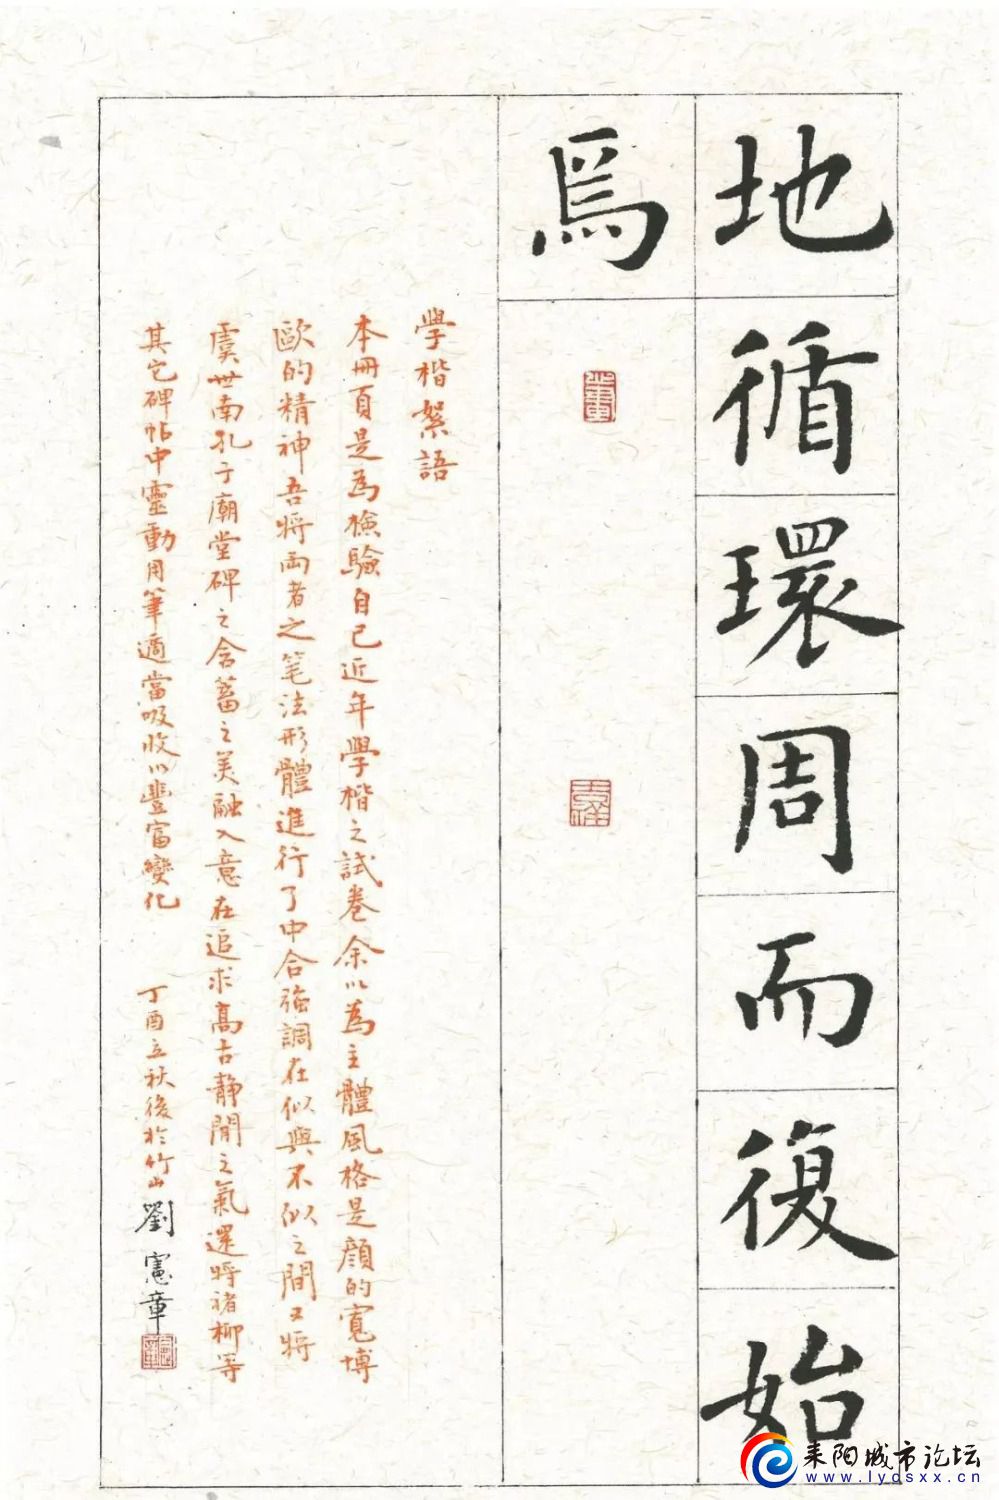 地循環周而復始
焉
學楷絮語
本冊頁是為檢驗自己近年學楷之試卷余以為主體風格是顔的寬博
歐的精神吾將兩者之笔法形體進行了中合強調在似與不似之間又將
虞世南孔子廟堂碑之含蓄之美融入意在追求高古静閒之氣還將褚柳等
其它碑帖中靈動用筆適當吸收以豐富變化
丁酉立秋後於竹山劉憲章
耒阳城市论坛
www.lycsxx.cn